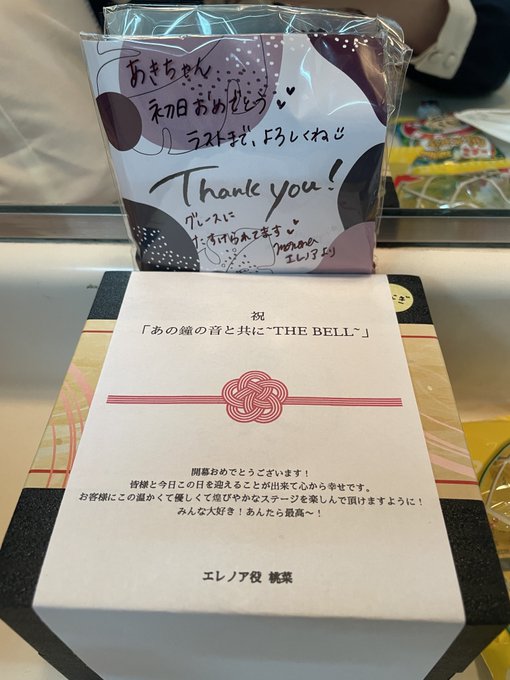 あきちゃん
初日おめでとう
ラストまで、よろしくね
Thank you!
グレースに
たすけられてます
momona
エレノアより
祝
「あの鐘の音と共に~THE BELL~」
開幕おめでとうございます！
皆様と今日この日を迎えることが出来て心から幸せです。
お客様にこの温かくて優しくて煌びやかなステージを楽しんで頂けますように！
みんな大好き！あんたら最高〜！
エレノア役 桃菜